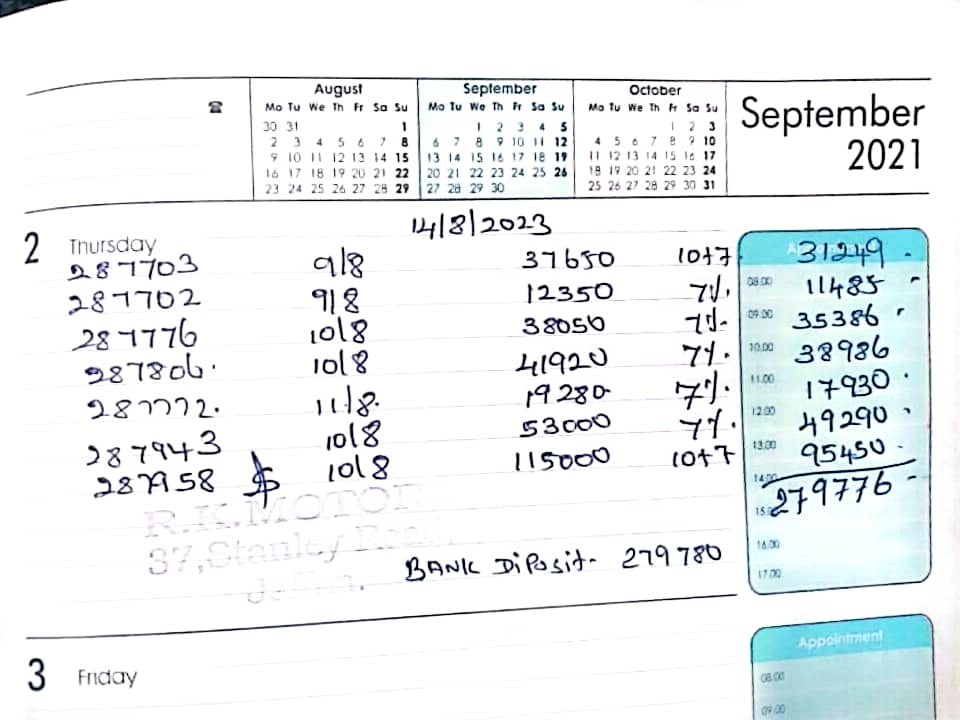 August September October
Mo Tu We Th Fr Sa Su Mo Tu We Th Fr Sa Su Mo Tu We Th Fr Sa Su
30 31 1 1 2 3 4 5 1 2 3
2 3 4 5 6 7 8 6 7 8 9 10 11 12 4 5 6 7 8 9 10
9 10 11 12 13 14 15 13 14 15 16 17 18 19 11 12 13 14 15 16 17
16 17 18 19 20 21 22 20 21 22 23 24 25 26 18 19 20 21 22 23 24
23 24 25 26 27 28 29 27 28 29 30 25 26 27 28 29 30 31
September
2021
14/8/2023
2 Thursday
287703 9/8 37650 10+7 31249
287702 9/8 12350 7% 08.00 11485
287776 10/8 38050 7% 09.00 35386
287806 10/8 41920 7% 10.00 38986
287772 11/8 19280 7% 11.00 17930
287943 10/8 53000 7% 12.00 49290
287958 10/8 115000 10+7 13.00 95450
14.00
15.00 279776
R.K.MOTOR
37,Stanley Road,
Jaffna.
BANK Diposit- 279780
16.00
17.00
3 Friday
Appointment
08.00
09.00